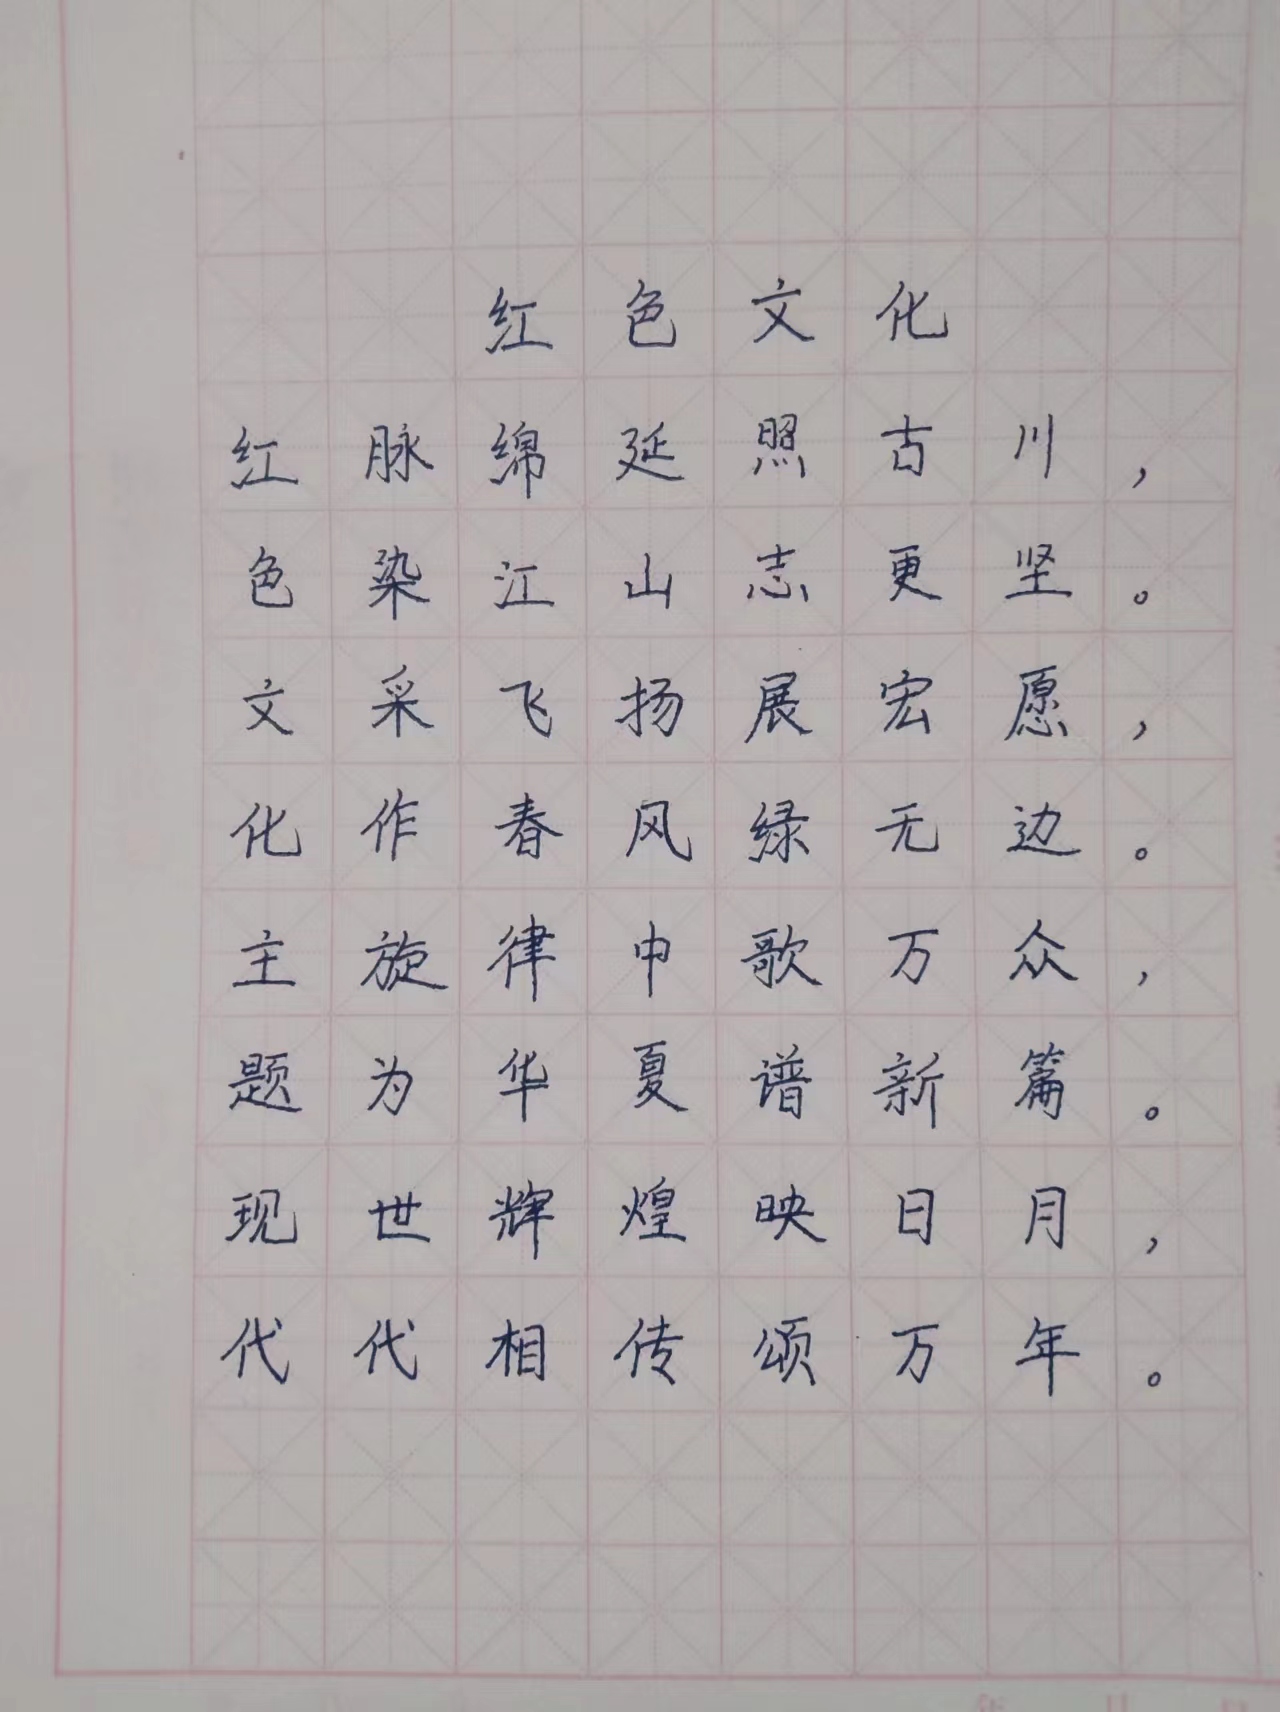 红色文化
红脉绵延照古川，
色染江山志更坚。
文采飞扬展宏愿，
化作春风绿无边。
主旋律中歌万众，
题为华夏谱新篇。
现世辉煌映日月，
代代相传颂万年。